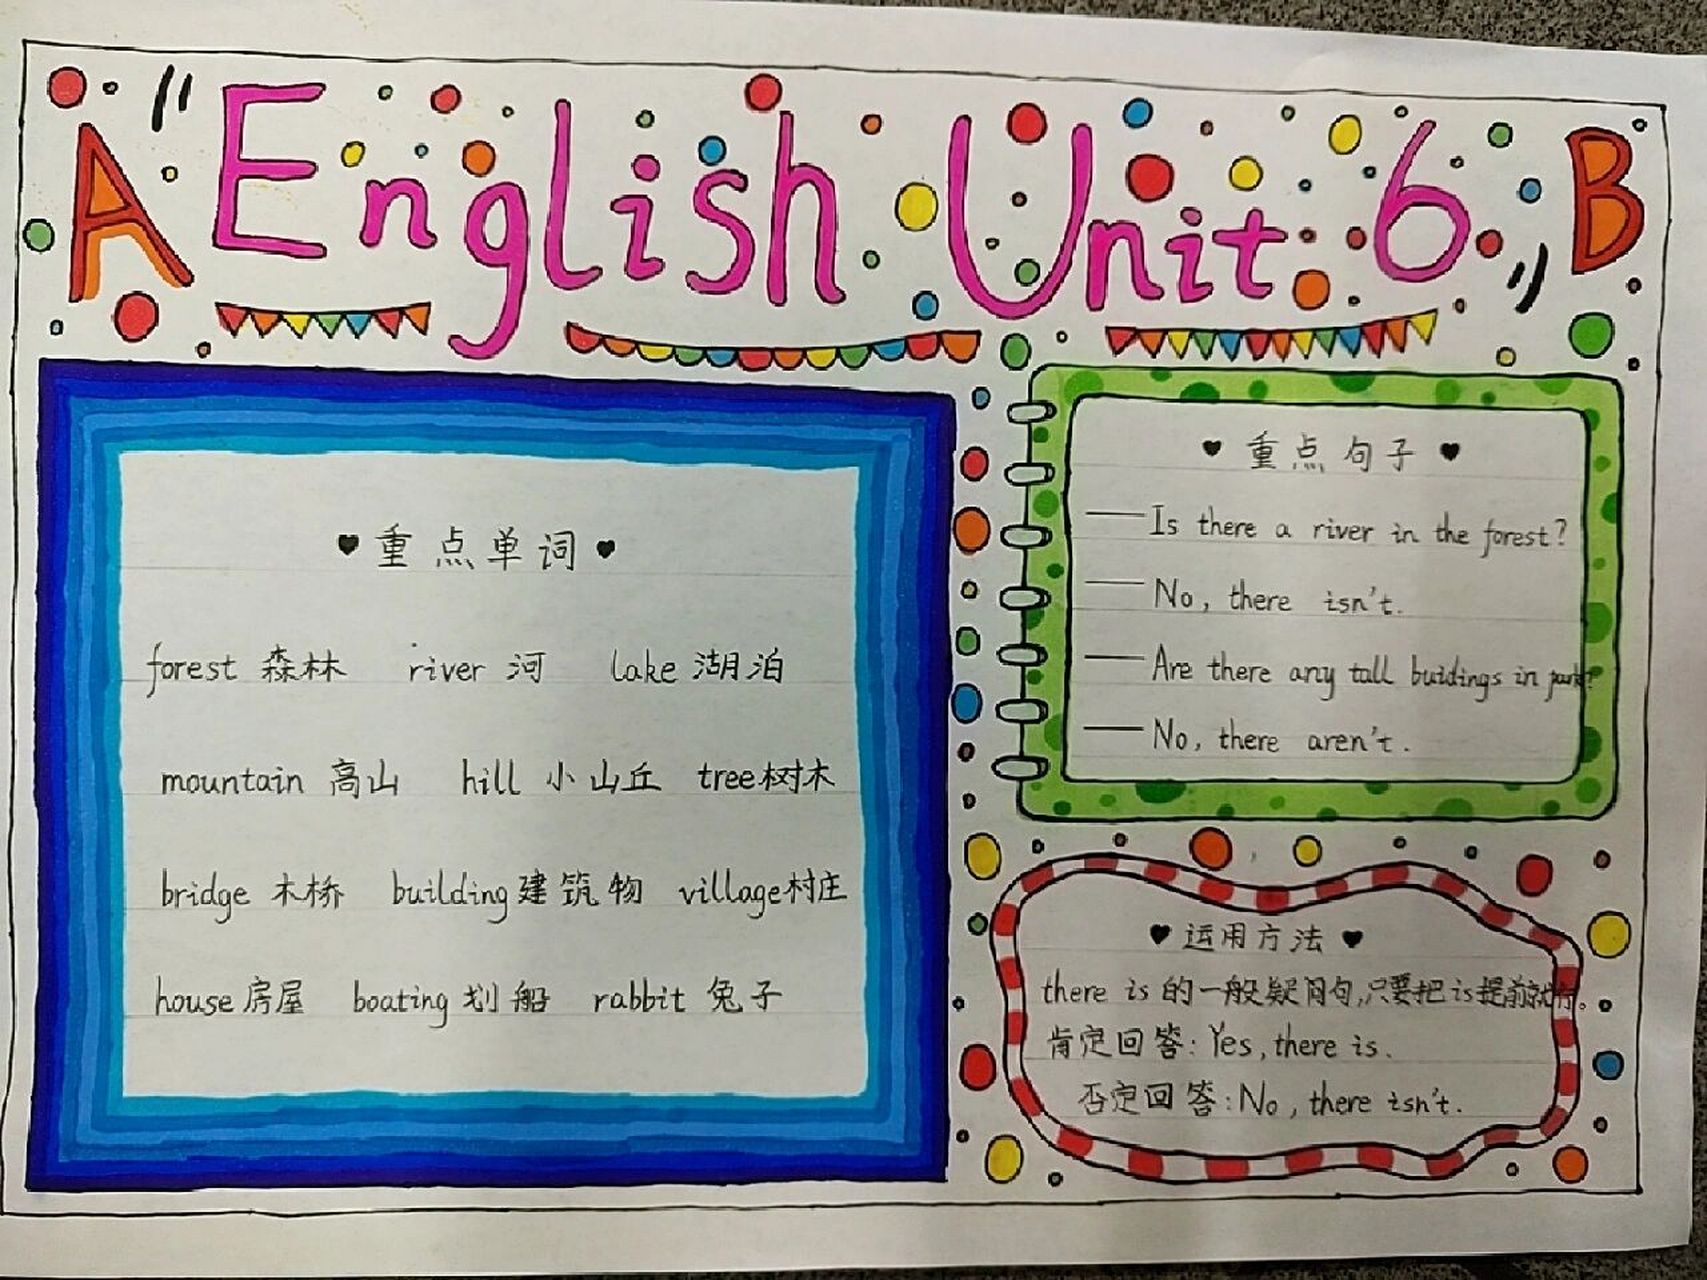 A "English Unit 6" B
♥重点单词♥
forest 森林 river 河 lake 湖泊
mountain 高山 hill 小山丘 tree 树木
bridge 木桥 building 建筑物 village 村庄
house 房屋 boating 划船 rabbit 兔子
♥重点句子♥
——Is there a river in the forest?
——No, there isn't.
——Are there any tall buidings in park?
——No, there aren't.
♥运用方法♥
there is 的一般疑问句,只要把is提前就行。
肯定回答: Yes, there is.
否定回答: No, there isn't.